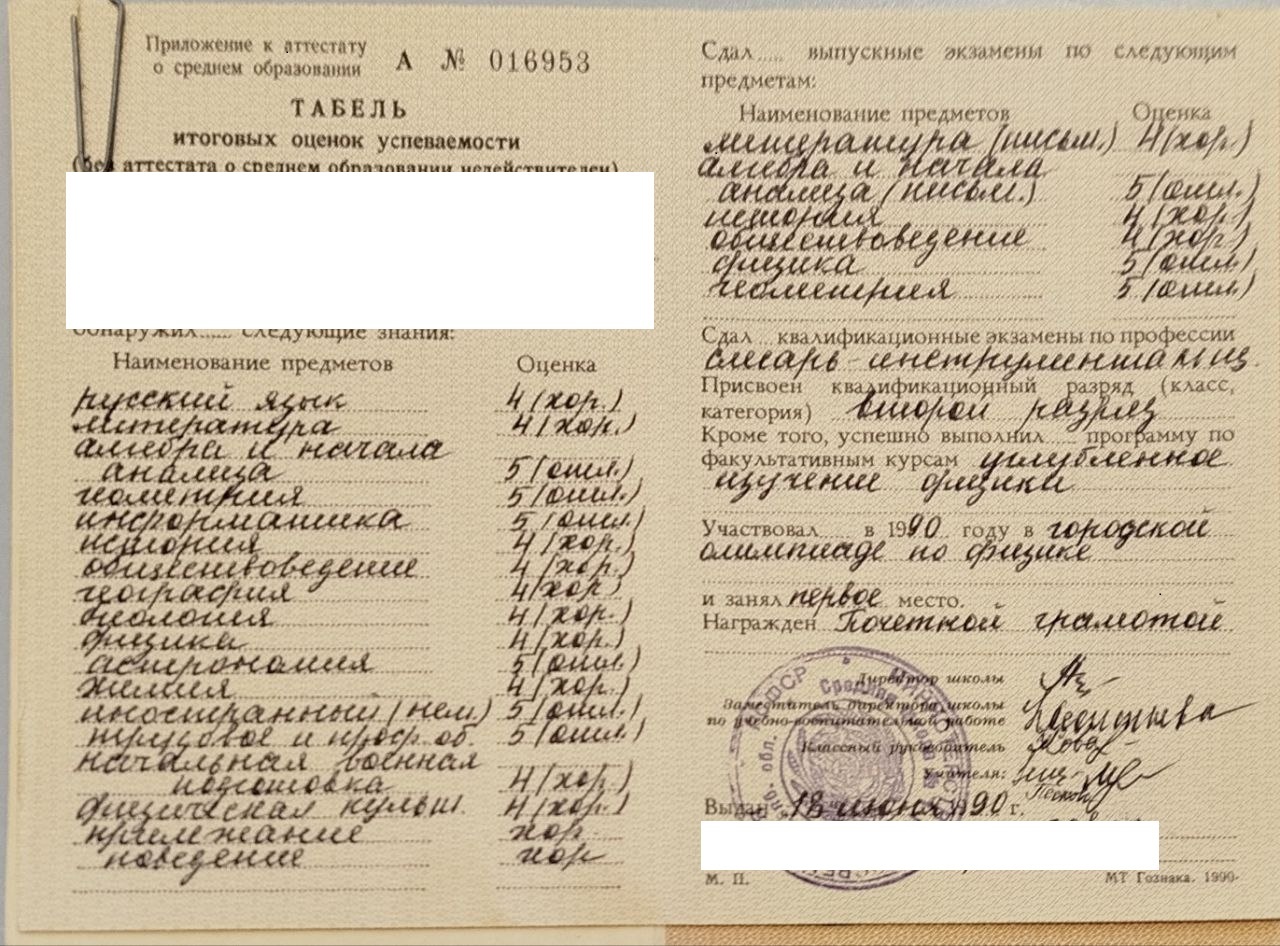 Приложение к аттестату
о среднем образовании А № 016953
ТАБЕЛЬ
итоговых оценок успеваемости
(без аттестата о среднем образовании недействителен)
обнаружил..... следующие знания:
Наименование предметов Оценка
русский язык 4 (хор.)
литература 4 (хор.)
алгебра и начала
анализа 5 (отл.)
геометрия 5 (отл.)
информатика 5 (отл.)
история 4 (хор.)
обществоведение 4 (хор.)
география 4 (хор)
биология 4 (хор.)
физика 4 (хор.)
астрономия 5 (отл.)
химия 4 (хор.)
иностранный (нем.) 5 (отл.)
трудовое и проф. об. 5 (отл.)
начальная военная
подготовка 4 (хор.)
физическая культ. 4 (хор.)
прилежание хор
поведение хор
Сдал..... выпускные экзамены по следующим
предметам:
Наименование предметов Оценка
литература (письм.) 4 (хор.)
алгебра и начала
анализа (письм.) 5 (отл.)
история 4 (хор.)
обществоведение 4 (хор.)
физика 5 (отл.)
геометрия 5 (отл.)
Сдал ... квалификационные экзамены по профессии
слесарь-инструментальщ.
Присвоен квалификационный разряд (класс,
категория) второй разряд
Кроме того, успешно выполнил..... программу по
факультативным курсам углубленное
изучение физики
Участвовал в 1990 году в городской
олимпиаде по физике
и занял первое место.
Награжден Почетной грамотой
Директор школы
Заместитель директора школы
по учебно-воспитательной работе
Классный руководитель
Учителя:
Выдан 18 июня 1990 г.
М. П. МТ Гознака. 1990.